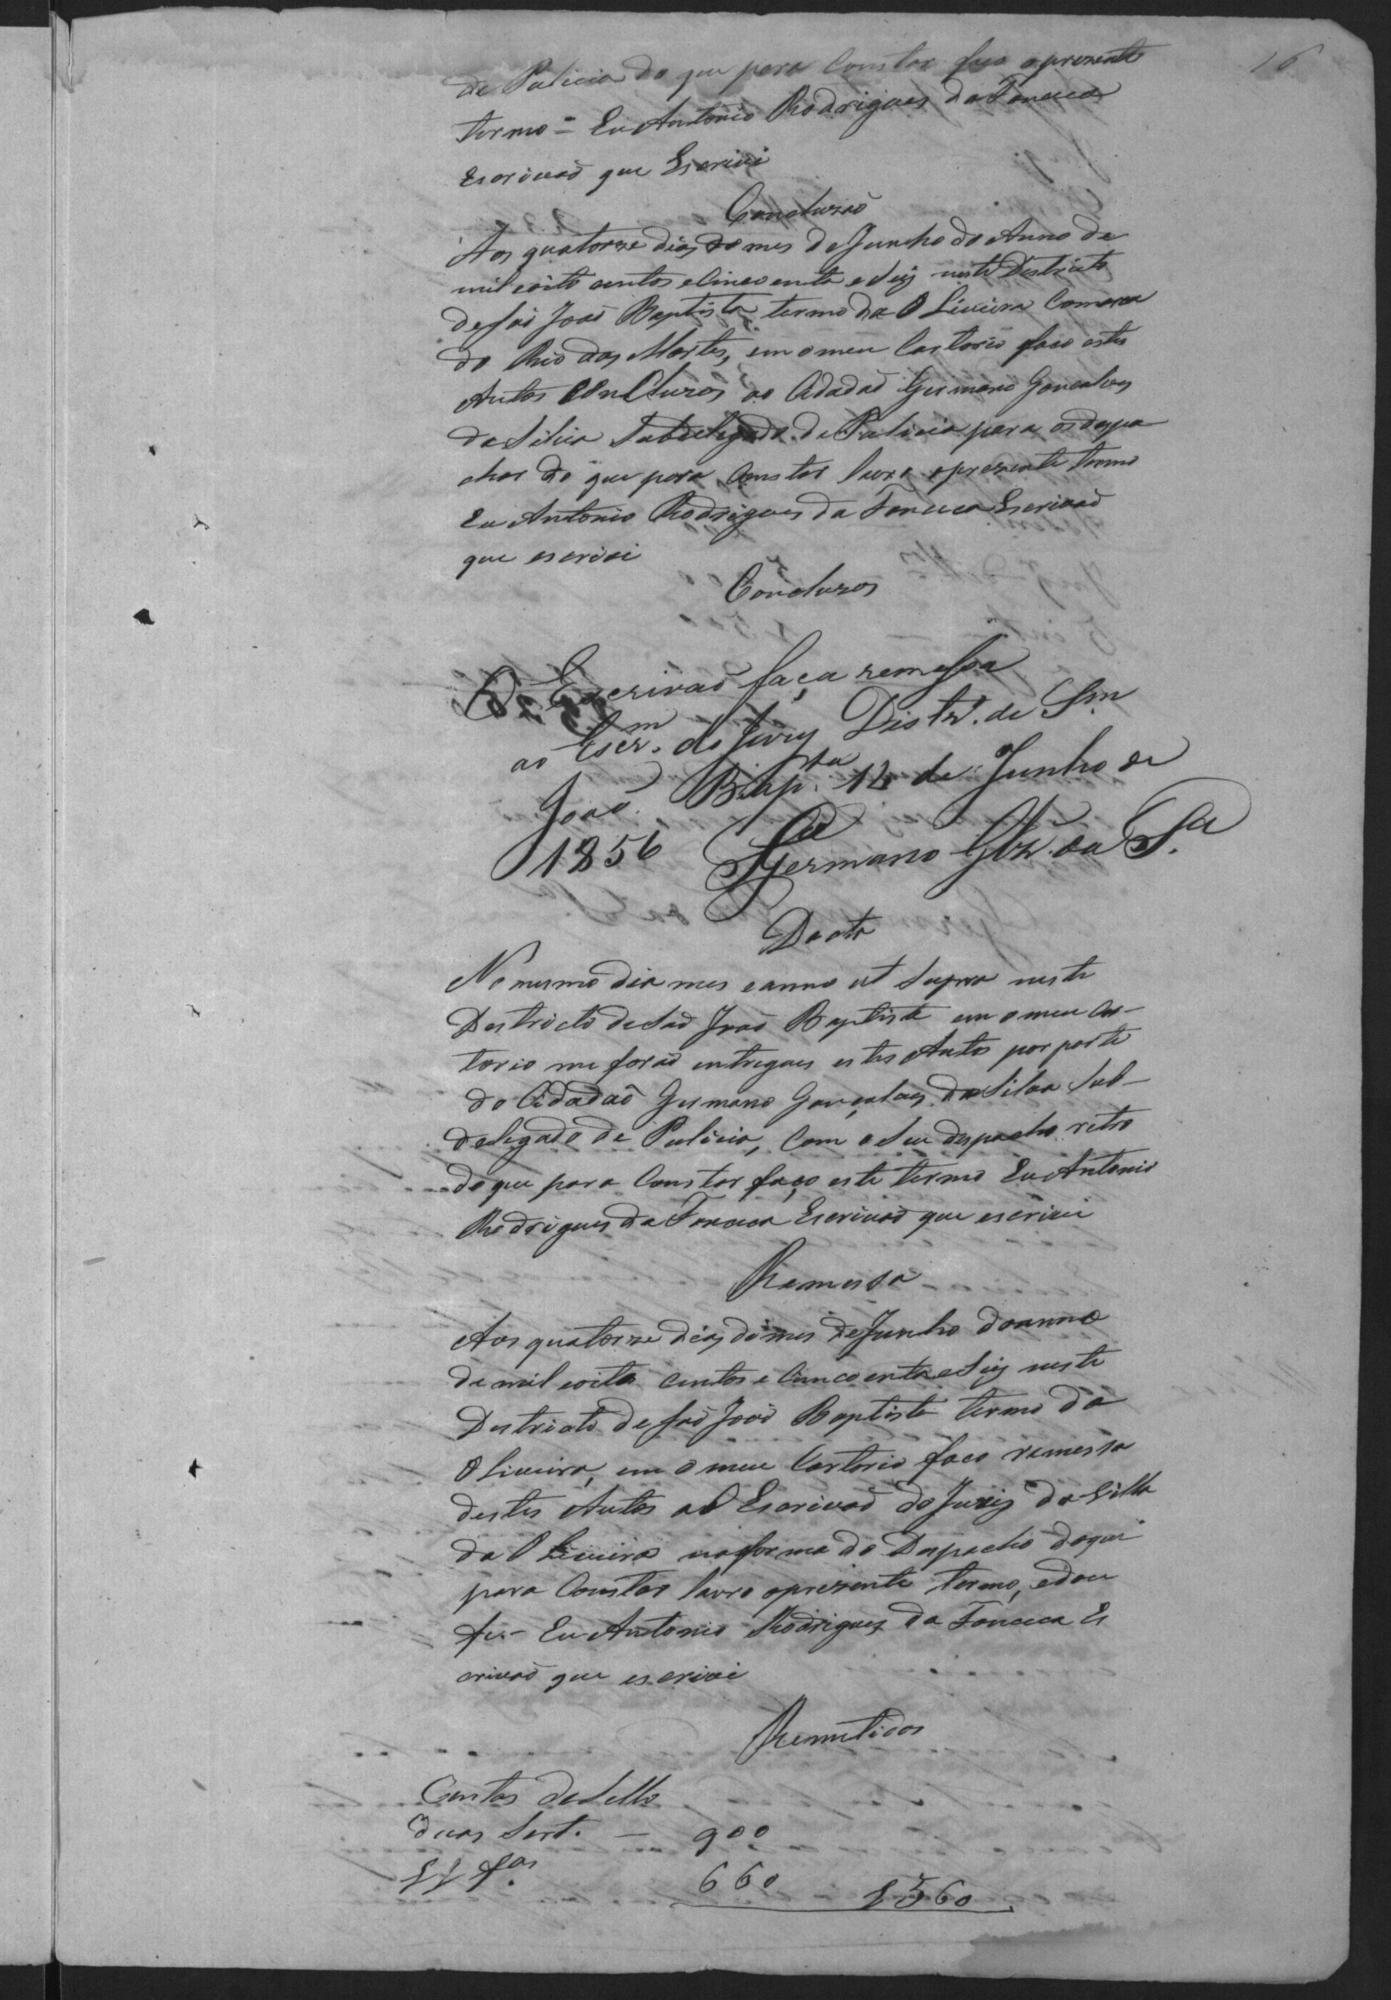 16
de Policia do que para Constar faço o prezente
termo = Eu Antonio Rodrigues da Fonceca
Escrivaõ que Escrivi
Concluzaõ
Aos quatorze dias do mes de Junho do Anno de
mil eoito centos e Cincoenta e Seis neste Districto
de Saõ Joaõ Baptista termo da OLiveira Comarca
do Rio das Mortes, em o meu Cartorio faço estes
Autos ConCluzos ao Cidadaõ Germano Goncalves
da Silva Subdelegado de Policia para os despa
char do que para Constar lavro o prezente termo
Eu Antonio Rodrigues da Fonceca Escrivaõ
que escrivi
Concluzos
O Escrivaõ faça remessa
ao Escr.m do Jury Distr.º de Sm
Joaõ Bap.ta 14 de Junho de
1856 Germano Glz' da S.a
Dacta
No mesmo dia mes e anno ut Supra neste
Destricto de Saõ Joaõ Baptista em o meu Car-
torio me foraõ entregues estes Autos por parte
do Cidadaõ Germano Gonçalves da Silva Sub-
delegado de Policia, Com o Seu despacho retro
do que para Constar faço este termo Eu Antonio
Rodrigues da Fonceca Escrivaõ que escrivi
Remessa
Aos quatorze dias do mes de Junho do anno
de mil eoito centos e Cincoenta e Seis neste
Destricto de Saõ Joaõ Baptista termo da
OLiveira, em o meu Cartorio faco remessa
destes Autos ao Escrivaõ do Jury da Villa
da OLiveira na forma do Despacho do que
para Constar lavro o prezente termo, e dou
fe.- Eu Antonio Rodrigues da Fonceca Es
crivaõ que escrivi
Remetidos
Contas de Sello
duas Sert. — 900
11 f.as 660 1560